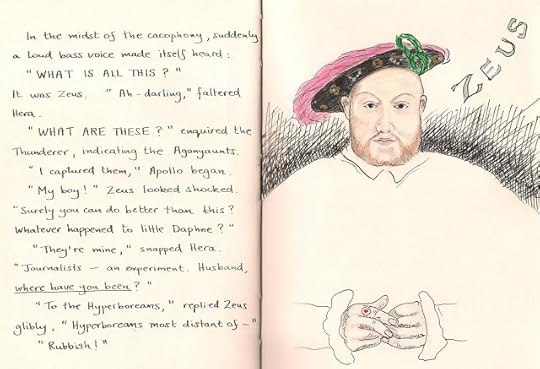 In the midst of the cacophony, suddenly
a loud bass voice made itself heard:
"WHAT IS ALL THIS?"
It was Zeus. "Ah - darling," faltered
Hera.
"WHAT ARE THESE?" enquired the
Thunderer, indicating the Agonyaunts.
"I captured them," Apollo began.
"My boy!" Zeus looked shocked.
"Surely you can do better than this?
Whatever happened to little Daphne?"
"They're mine," snapped Hera.
"Journalists — an experiment. Husband,
where have you been?"
"To the Hyperboreans," replied Zeus
glibly, "Hyperboreans most distant of —"
"Rubbish!"
ZEUS